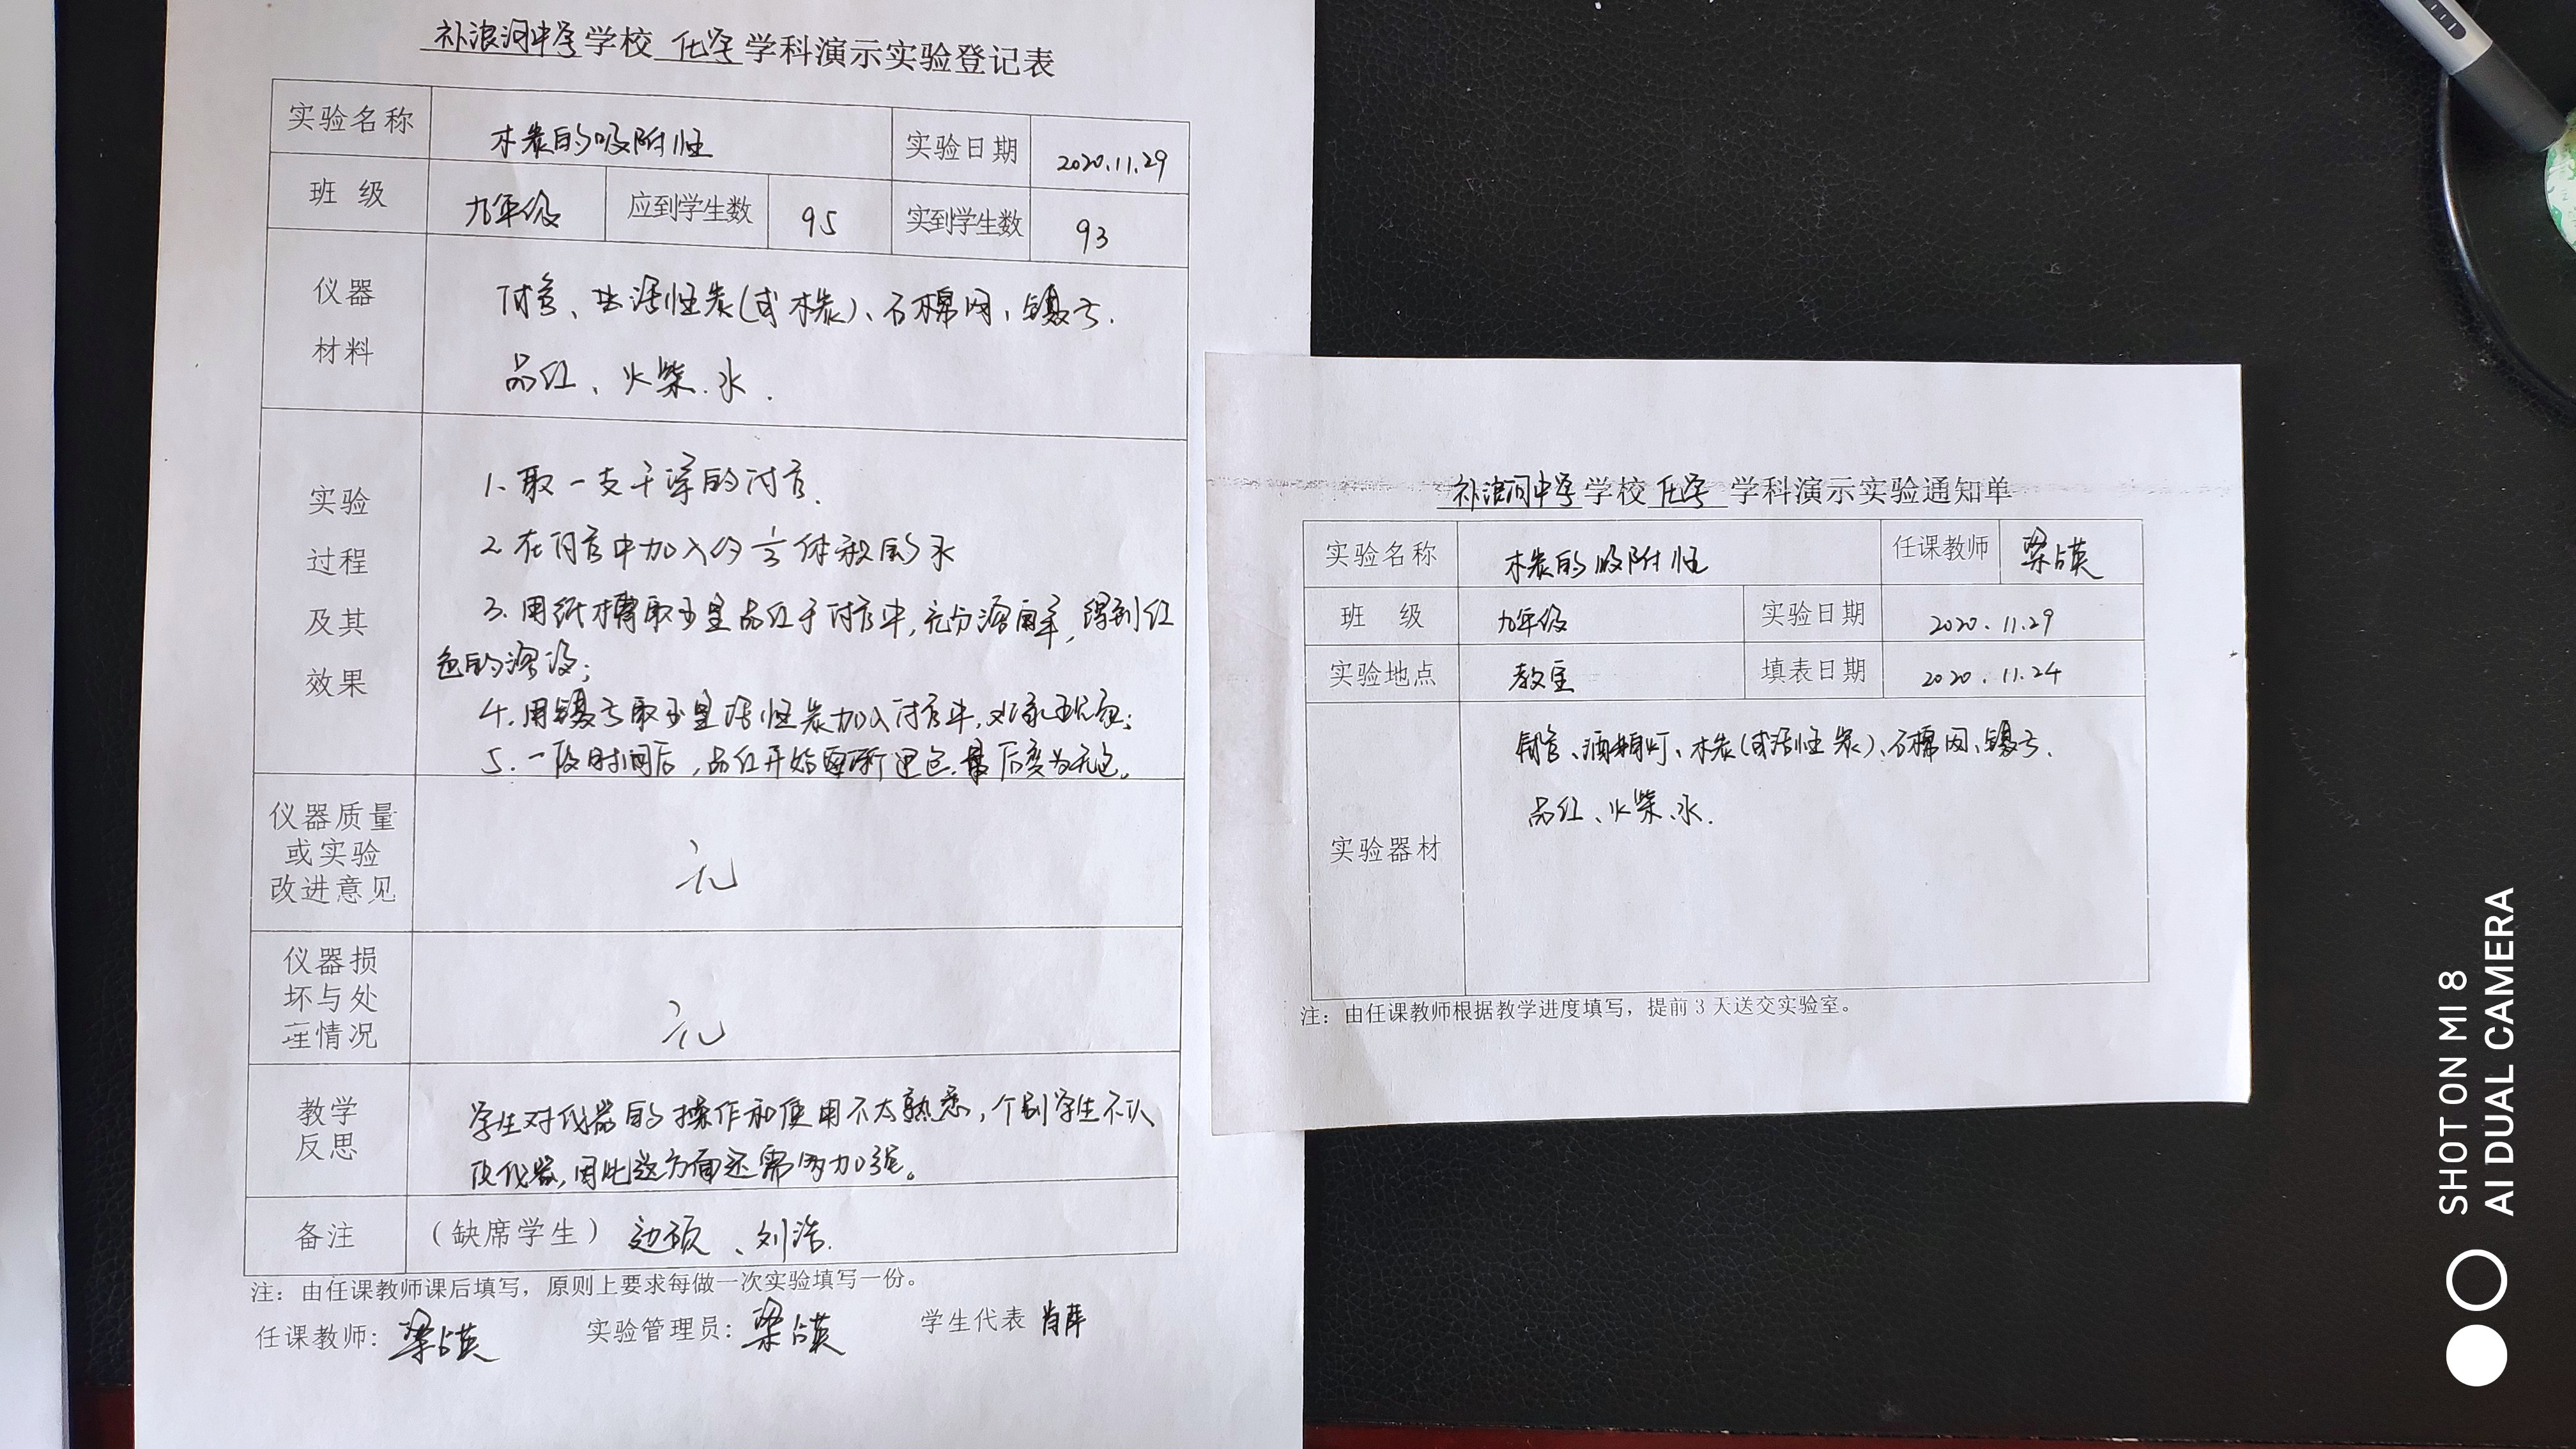 补浪河中学学校 化学 学科演示实验登记表
实验名称 木炭的吸附性 实验日期 2020.11.29
班 级 九年级 应到学生数 95 实到学生数 93
仪器材料 试管、活性炭(或木炭)、石棉网、镊子.
品红、火柴.水.
实验过程及其效果 1.取一支干净的试管.
2.在试管中加入约1/3体积的水
3.用纸槽取少量品红于试管中,充分溶解,得到红
色的溶液;
4.用镊子取少量活性炭加入试管中,观察现象;
5.一段时间后,品红开始逐渐退色.最后变为无色。
仪器质量或实验改进意见 无
仪器损坏与处理情况 无
教学反思 学生对仪器的操作和使用不太熟悉,个别学生不认
识仪器,因此这方面还需多加强。
备注 (缺席学生) 边硕、刘浩.
注：由任课教师课后填写，原则上要求每做一次实验填写一份。
任课教师: 梁占英 实验管理员: 梁占英 学生代表 肖萍
补浪河中学学校 化学 学科演示实验通知单
实验名称 木炭的吸附性 任课教师 梁占英
班 级 九年级 实验日期 2020.11.29
实验地点 教室 填表日期 2020.11.24
实验器材 试管、酒精灯、木炭(或活性炭)、石棉网、镊子.
品红、火柴、水.
注：由任课教师根据教学进度填写，提前3天送交实验室。
SHOT ON MI 8
AI DUAL CAMERA